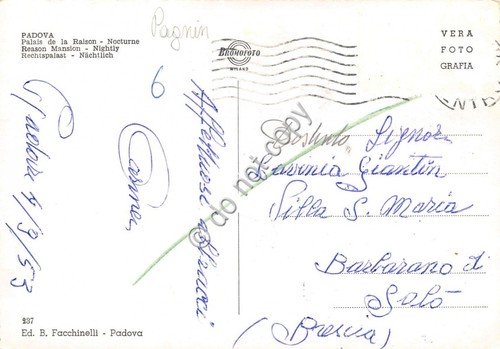 PADOVA
Palais de la Raison - Nocturne
Reason Mansion - Nightly
Rechtspalast - Nächtlich
Pagnin
6
BROMOFOTO
MILANO
VERA
FOTO
GRAFIA
Padova 4/9/53
Affettuosi abbracci
© do not copy
Signora
Lavinia Giantin
Villa S. Maria
Barbarano di
Salò
(Brescia)
237
Ed. B. Facchinelli - Padova